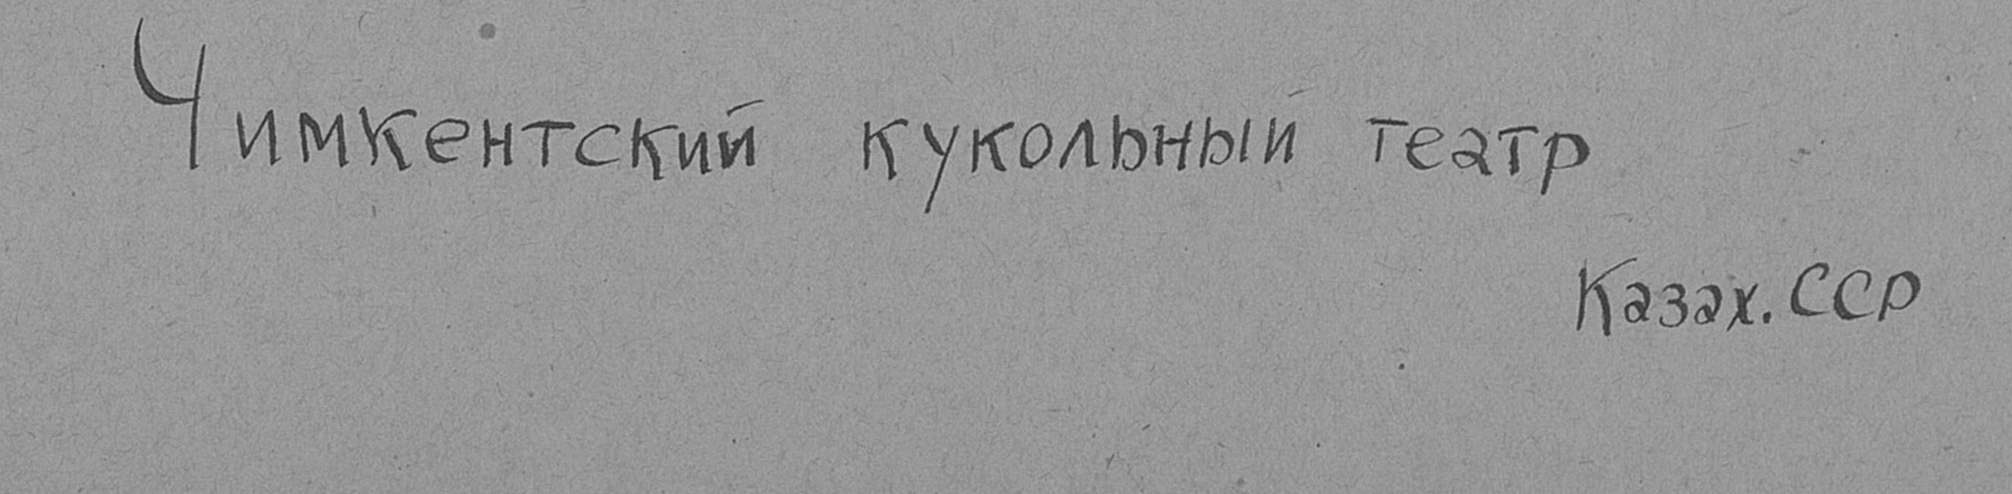 Чимкентский кукольный театр
Казах. ССР